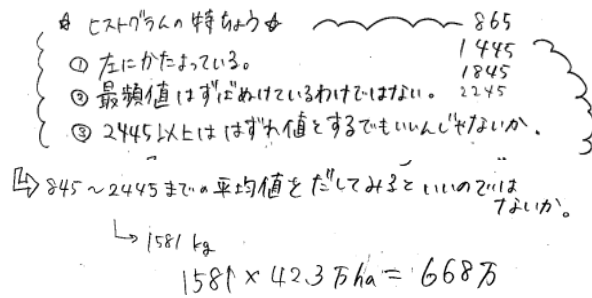 ☆ ヒストグラムの特ちょう☆
865
1445
1845
2245
① 左にかたまっている。
② 最頻値はずばぬけているわけではない。
③ 2445以上ははずれ値とするでもいいんじゃないか。
⇨ 845～2445までの平均値をだしてみるといいのでは
ないか。
↳ 1581 kg
1581 × 42.3万ha = 668万